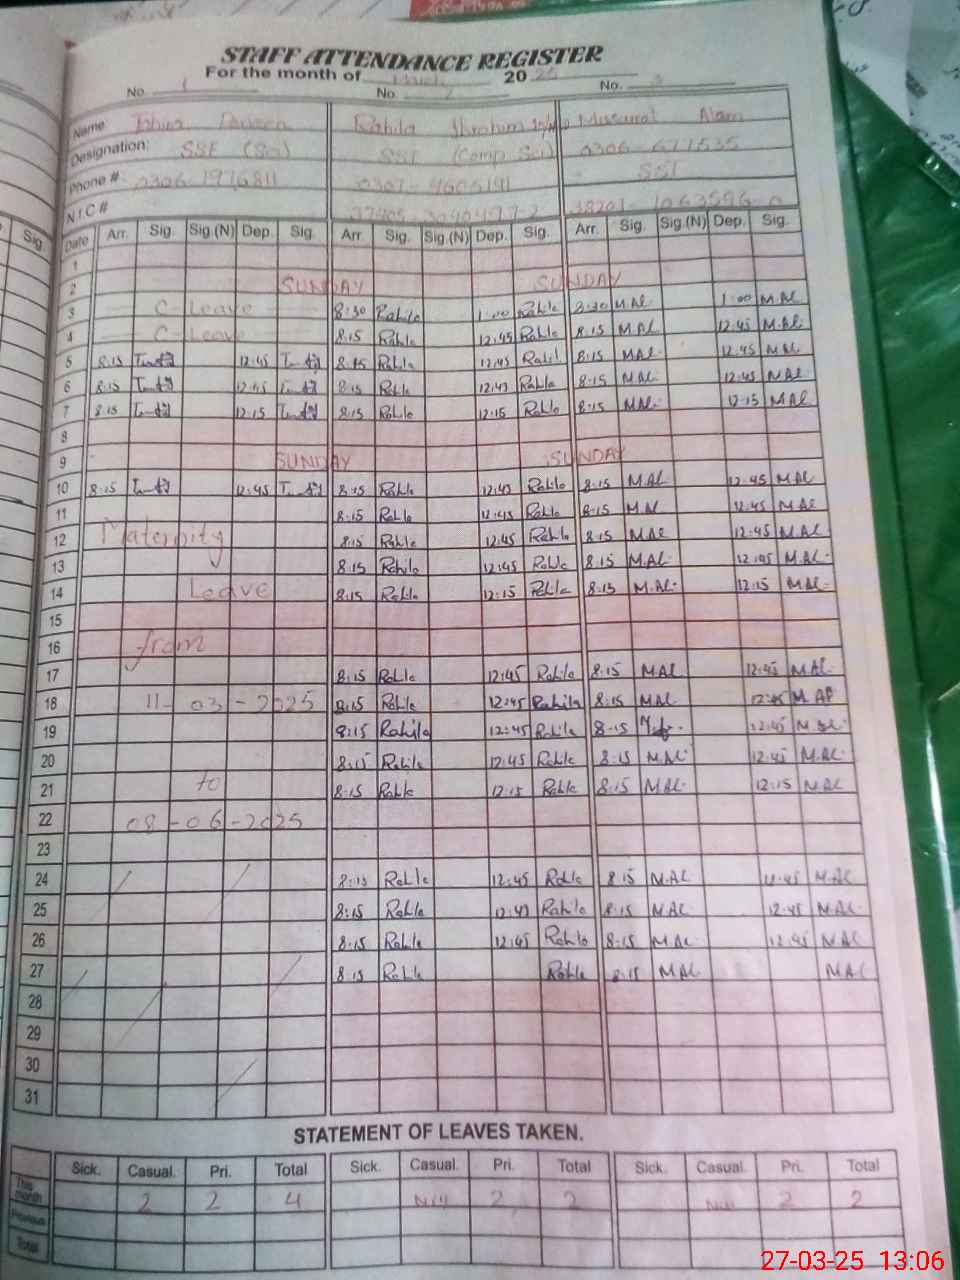 STAFF ATTENDANCE REGISTER
For the month of March 2025
No. 1 No. 2 No. 3
Name: Rahila Ibrahim Musarat Alam
Designation: SSE (Sci) SST (Comp Sci) 0306-
Phone #: 0306-1976811 0307-4605141 SST
N.I.C #
Date Arr. Sig. Sig.(N) Dep. Sig. Arr. Sig. Sig.(N) Dep. Sig. Arr. Sig. Sig.(N) Dep. Sig.
1
2 SUNDAY SUNDAY
3 C-Leave 8:30 Rahila 1:00 Rahila 8:30 M.AL 1:00 M.AL
4 C-Leave 8:15 Rahila 12:45 Rahila 8:15 MAL 12:45 M.AL
5 8:15 12:45 8:15 Rahila 12:45 Rahil 8:15 MAL 12:45 MAL
6 8:15 12:45 8:15 Rahila 12:45 Rahila 8:15 MAL 12:45 MAL
7 8:15 12:15 8:15 Rahila 12:15 Rahla 8:15 MAL 12:15 MAL
8
9 SUNDAY SUNDAY
10 8:15 12:45 8:15 Rahla 12:45 Rahila 8:15 M.AL 12:45 MAL
11 8:15 Rahla 12:45 Rahila 8:15 MAL 12:45 MAL
12 Maternity 8:15 Rahla 12:45 Rahla 8:15 MAL 12:45 MAL
13 8:15 Rahila 12:45 Rahla 8:15 M.AL 12:45 MAL
14 Leave 8:15 Rahla 12:15 Rahla 8:15 M.AL 12:15 MAL
15
16 from
17 8:15 Rahla 12:45 Rahila 8:15 MAL 12:45 MAL
18 11-03-2025 8:15 Rahla 12:45 Rahila 8:15 MAL 12:45 M.AL
19 8:15 Rahila 12:45 Rahila 8:15 12:45 M.AL
20 8:15 Rahila 12:45 Rahla 8:15 MAL 12:45 MAL
21 to 8:15 Rahla 12:15 Rahla 8:15 MAL 12:15 MAL
22 08-06-2025
23
24 8:15 Rahla 12:45 Rahla 8:15 M.AL 12:45 MAL
25 8:15 Rahla 12:45 Rahila 8:15 MAL 12:45 MAL
26 8:15 Rahla 12:45 Rahla 8:15 MAL 12:45 MAL
27 8:15 Rahla Rahla 8:15 MAL MAL
28
29
30
31
STATEMENT OF LEAVES TAKEN.
Sick. Casual. Pri. Total Sick. Casual. Pri. Total Sick. Casual. Pri. Total
This month 2 2 4 Nil 2 2 Nil 2 2
Previous
Total
27-03-25 13:06